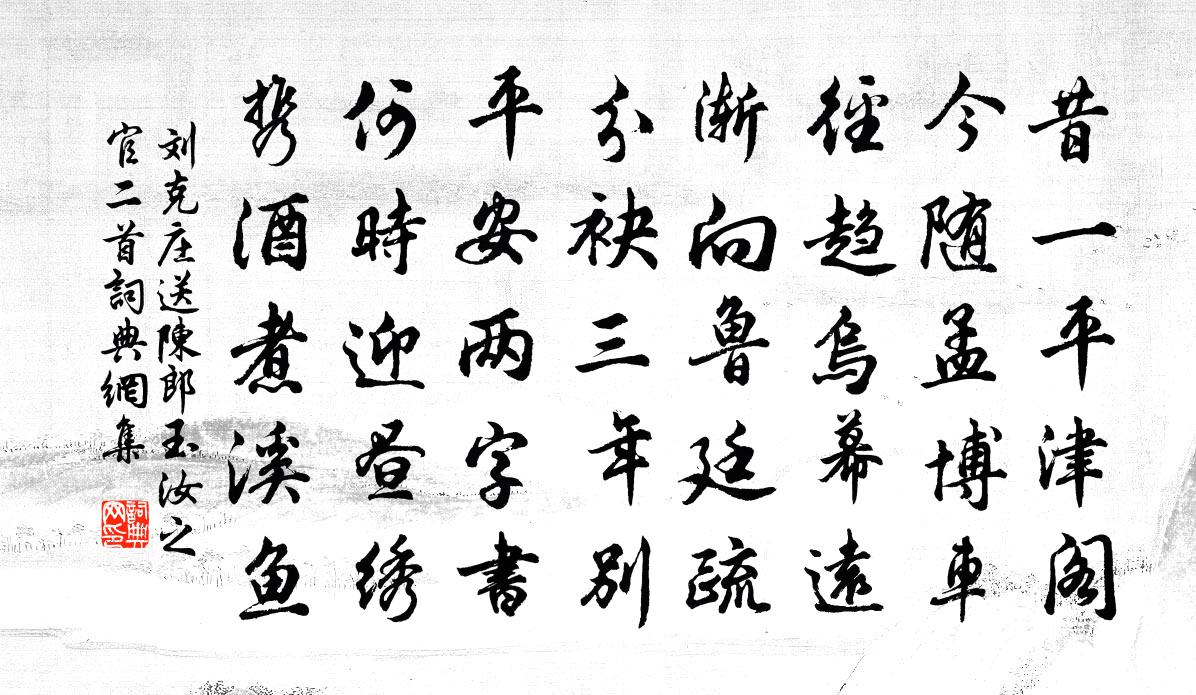 昔一平津阁
今随孟博車
徑趋烏幕遠
渐向鲁廷疏
分袂三年别
平安两字書
何時迎昼绣
携酒煮溪鱼
刘克庄送陳郎玉汝之
官二首詞典網集
詞典网印